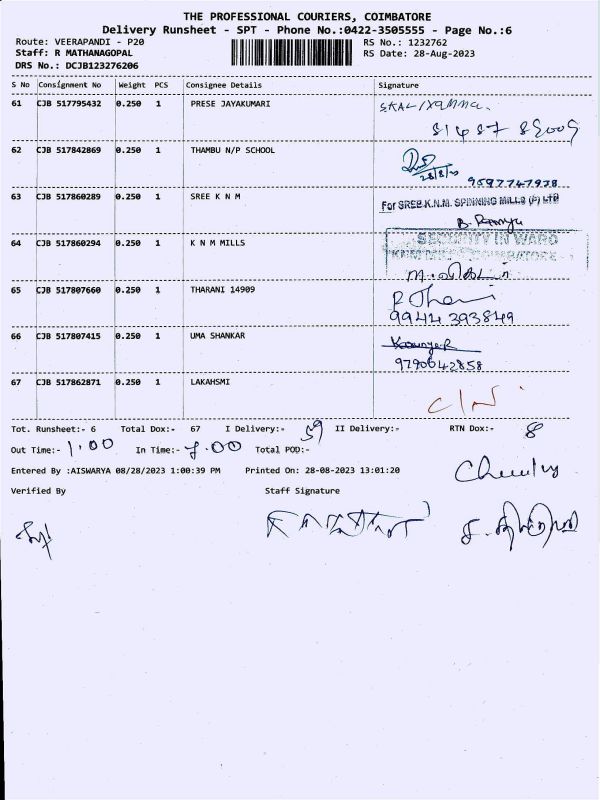 THE PROFESSIONAL COURIERS, COIMBATORE
Delivery Runsheet - SPT - Phone No.:0422-3505555 - Page No.:6
Route: VEERAPANDI - P20 RS No.: 1232762
Staff: R MATHANAGOPAL RS Date: 28-Aug-2023
DRS No.: DCJB123276206
S No Consignment No Weight PCS Consignee Details Signature
61 CJB 517795432 0.250 1 PRESE JAYAKUMARI
62 CJB 517842869 0.250 1 THAMBU N/P SCHOOL
28/8/23
9597747978
63 CJB 517860289 0.250 1 SREE K N M For SREE K.N.M. SPINNING MILLS (P) LTD
B. Ramya
64 CJB 517860294 0.250 1 K N M MILLS SECURITY IN WARD
65 CJB 517807660 0.250 1 THARANI 14909 R Thani
9944 393849
66 CJB 517807415 0.250 1 UMA SHANKAR
9790642858
67 CJB 517862871 0.250 1 LAKAHSMI C/N
Tot. Runsheet:- 6 Total Dox:- 67 I Delivery:- 59 II Delivery:- RTN Dox:- 8
Out Time:- 1.00 In Time:- 7.00 Total POD:-
Entered By :AISWARYA 08/28/2023 1:00:39 PM Printed On: 28-08-2023 13:01:20
Verified By Staff Signature